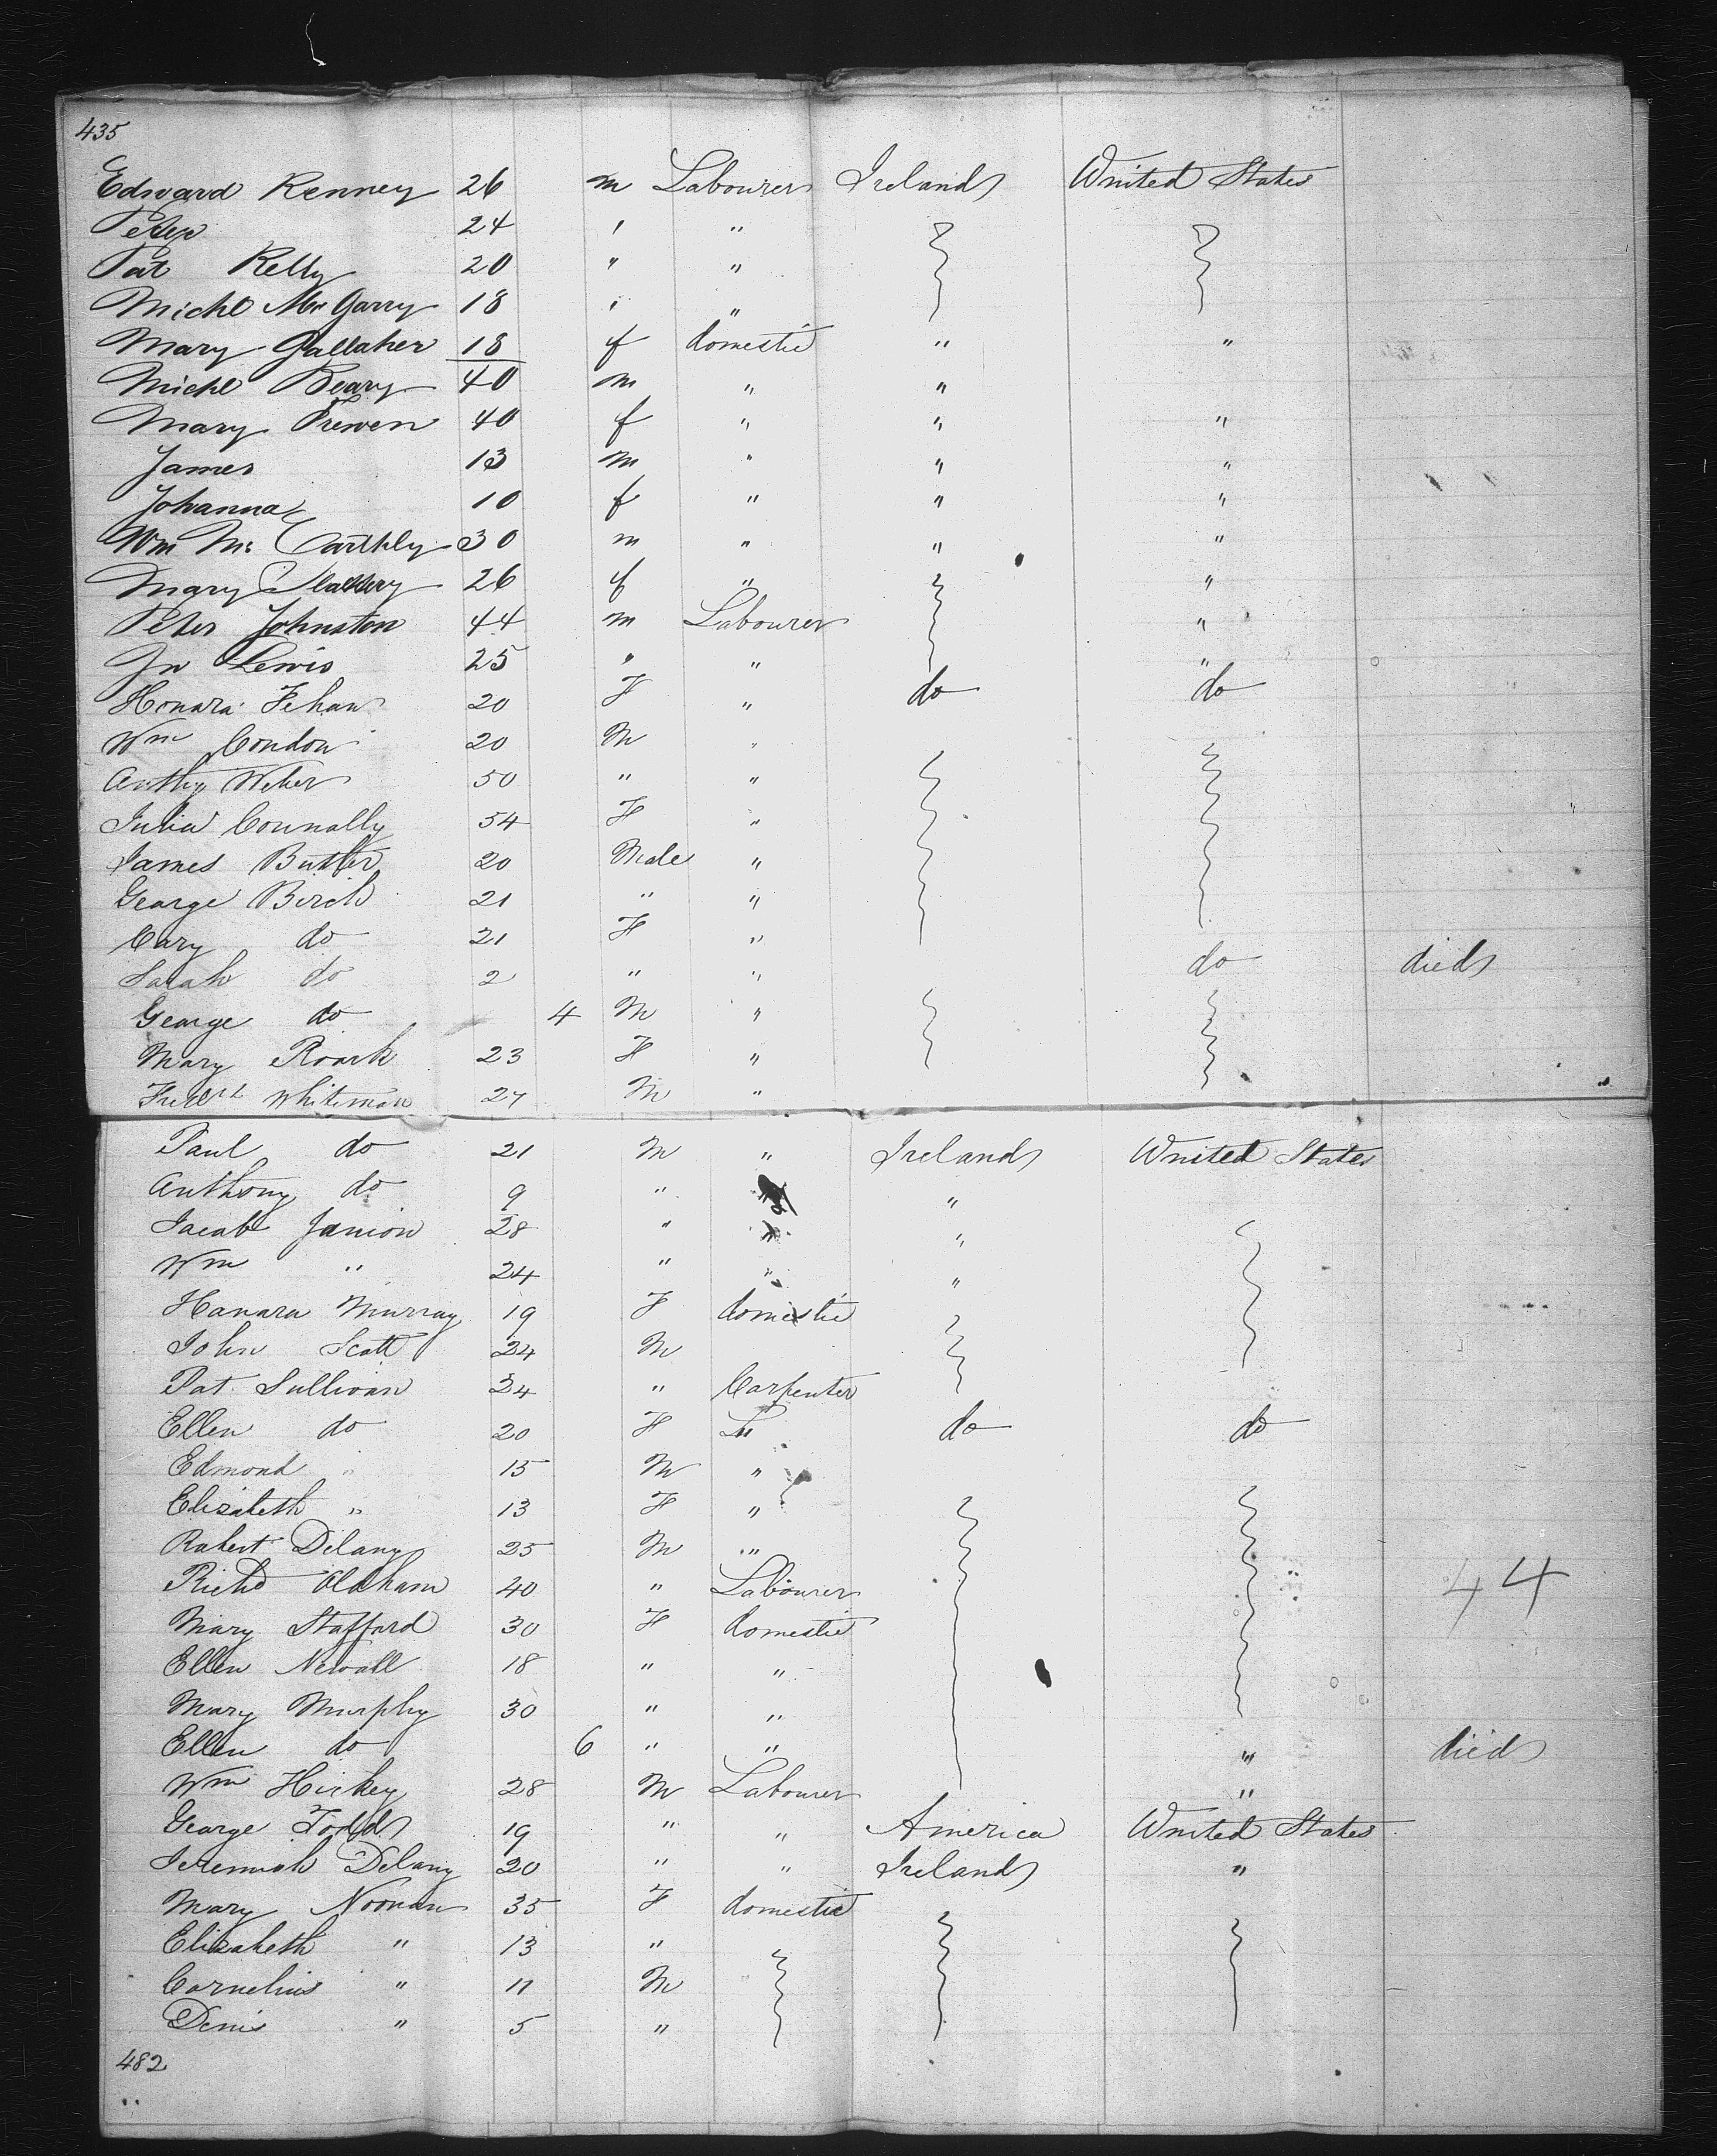 435
Edward Kenney 26 m Labourer Ireland United States
Peter 24 " "
Pat Kelly 20 " "
Michl McGarry 18 " "
Mary Gallaher 18 f domestic " "
Michl Beary 40 m " "
Mary Frewen 40 f " " "
James 13 m " " "
Johanna 10 f " " "
Wm Mc Carthly 30 m " " "
Mary Slattery 26 f " "
Peter Johnston 44 m Labourer "
Jn Lewis 25 " " "
Honara Fehan 20 F " do do
Wm Condon 20 M "
Anthy Weher 50 " "
Julia Connally 54 F "
James Butler 20 Male "
George Birch 21 " "
Cary do 21 F "
Sarah do 2 " " do died
George do 4 M "
Mary Roark 23 F "
Whiteman 27 M "
Paul do 21 M " Ireland United States
Anthony do 9 " " "
Jacob Janion 28 " " "
Wm " 24 " " "
Hanara Murray 19 F domestic
John Scott 24 M
Pat Sullivan 24 " Carpenter
Ellen do 20 F do do
Edmond " 15 M "
Elizabeth " 13 F "
Robert Delany 25 M "
Richd Oldham 40 " Labourer
44
Mary Stafford 30 F domestic
Ellen Newall 18 " "
Mary Murphy 30 " "
Ellen do 6 " " " died
Wm Hickey 28 M Labourer "
George Todd 19 " " America United States
Jeremiah Delany 20 " " Ireland "
Mary Noonan 35 F domestic
Elizabeth " 13 "
Cornelius " 11 M
Denis " 5 "
482